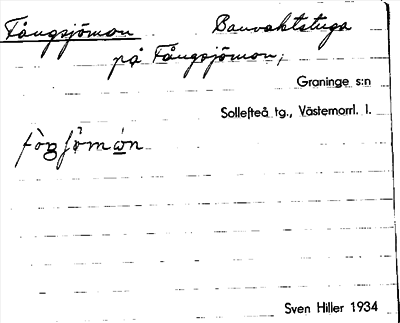 Fångsjömon. Banvaktstuga
på Fångsjömon,
Graninge s:n
Sollefteå tg., Västernorrl. l.
Sven Hiller 1934